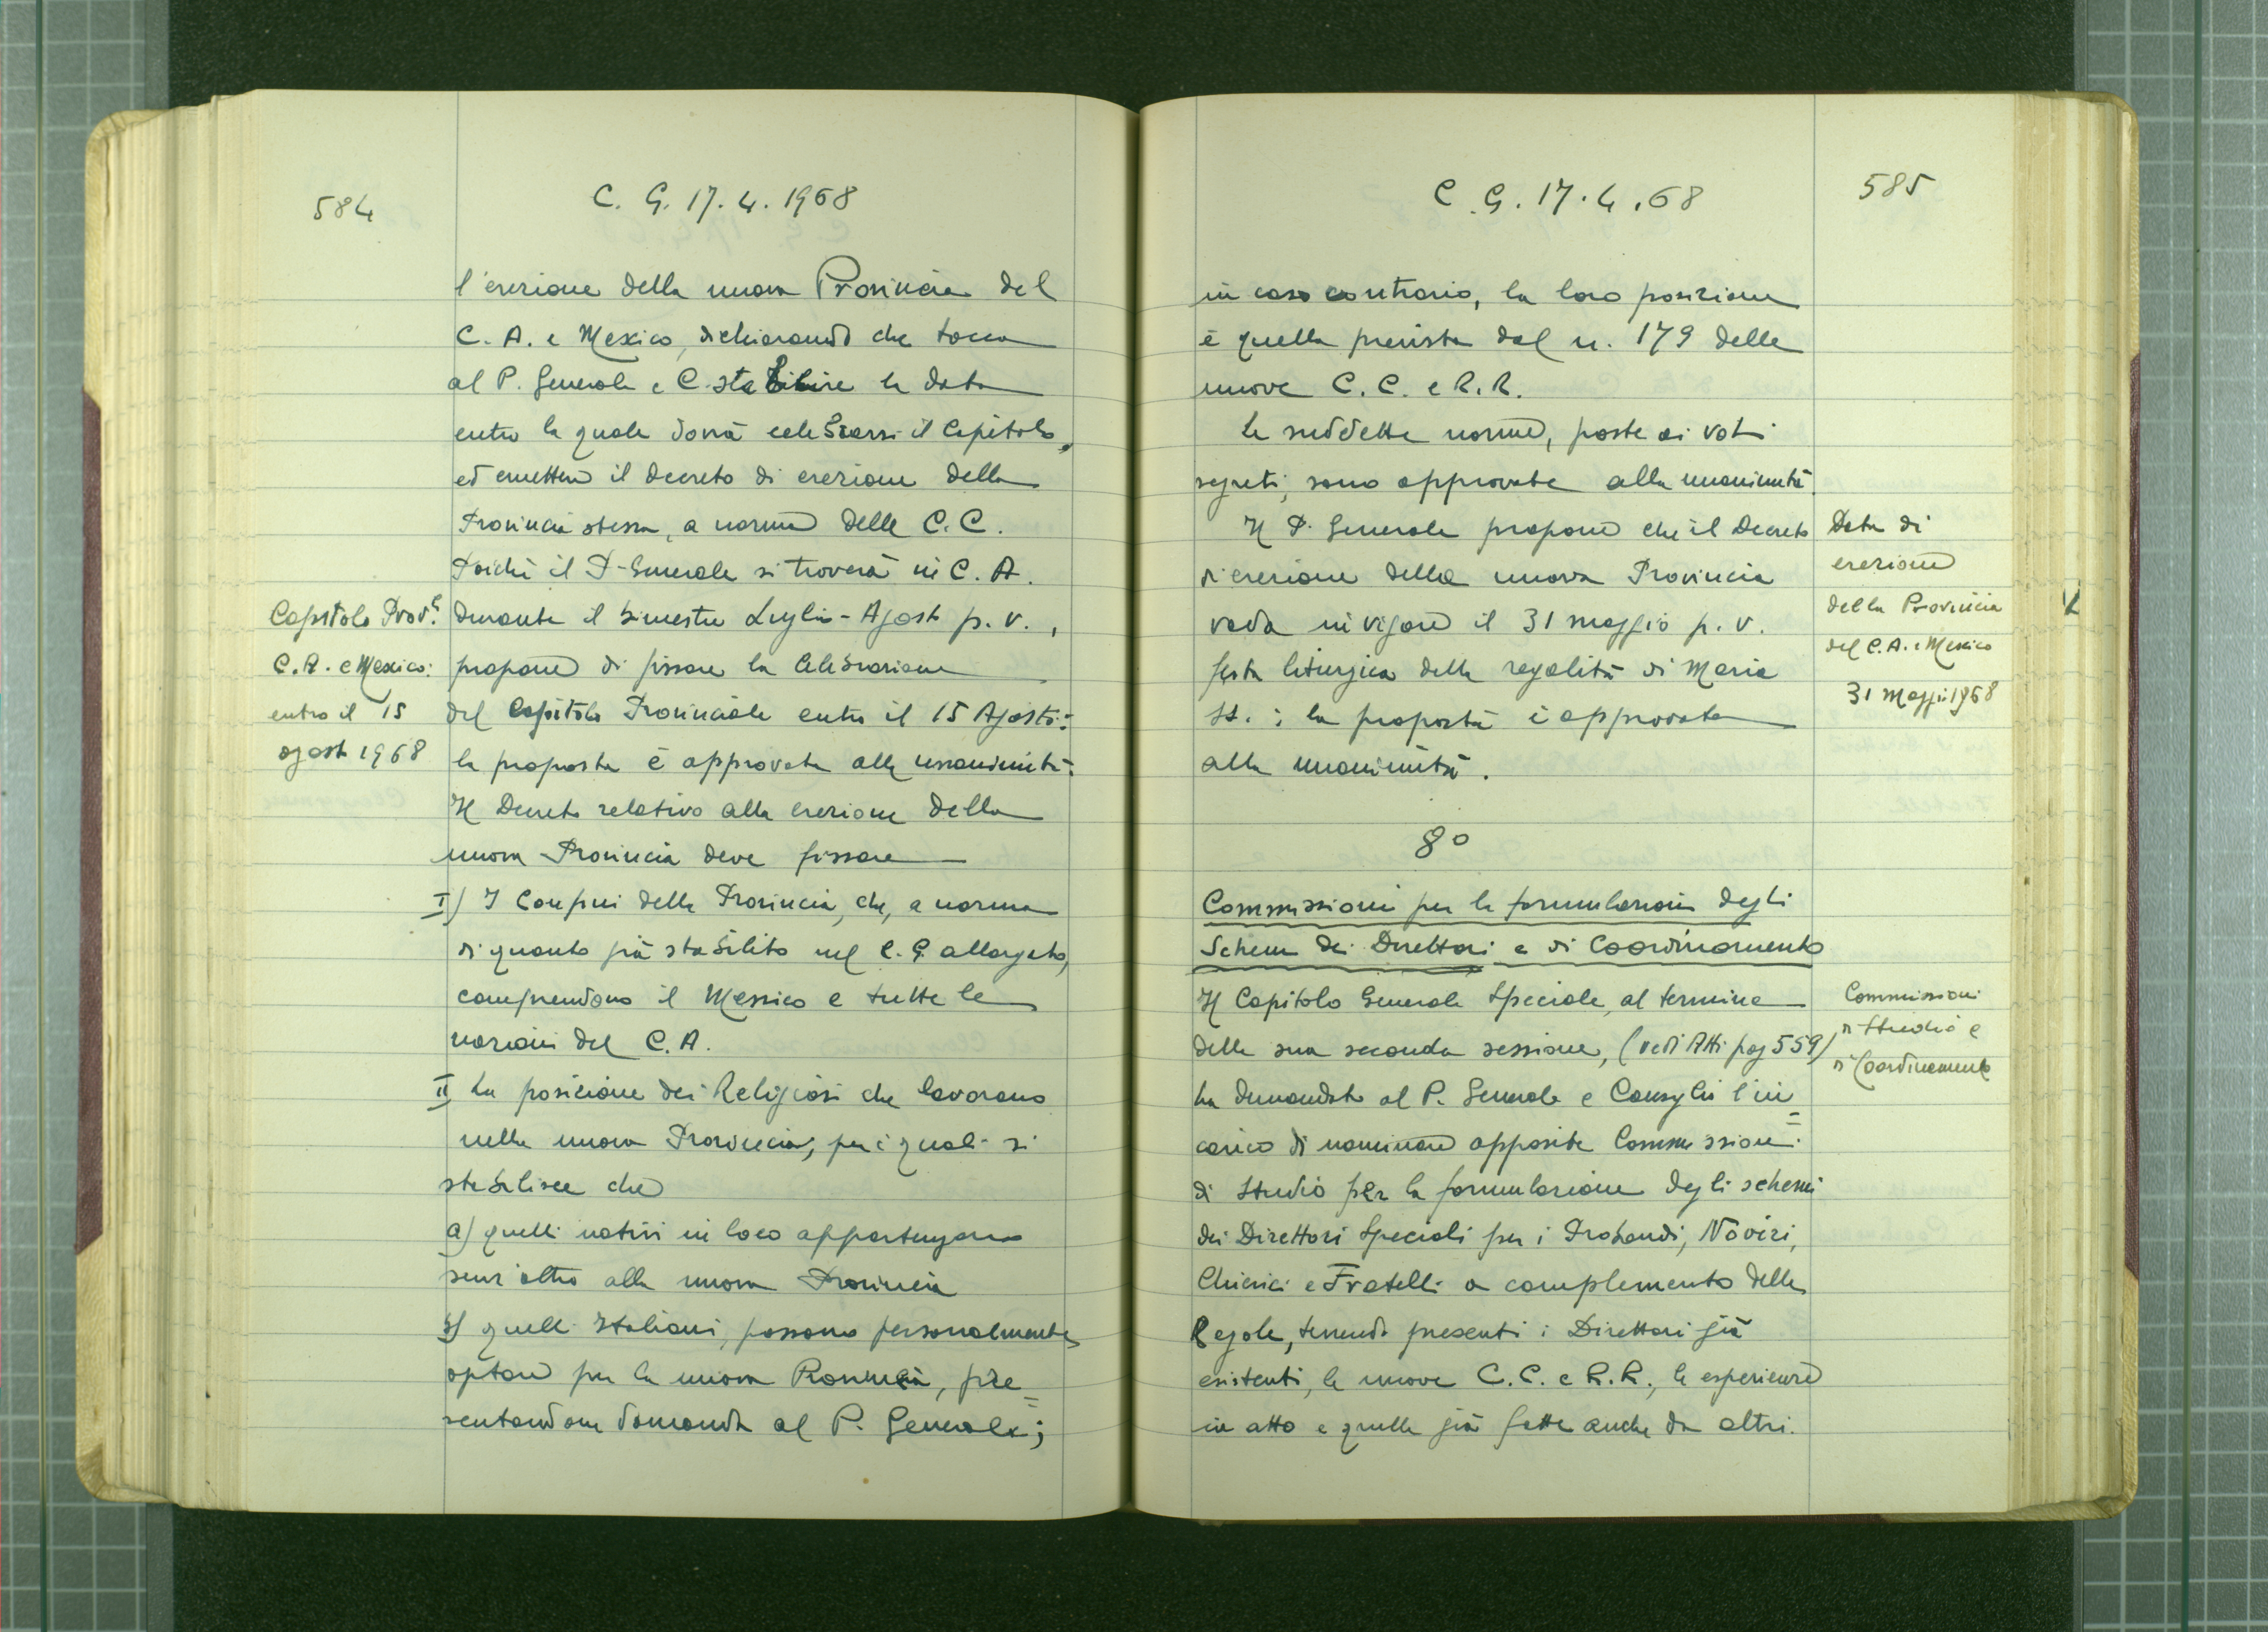 584
C. G. 17. 4. 1968
l'erezione della nuova Provincia del
C. A. e Mexico, dichiarando che tocca
al P. Generale e C. stabilire la data
entro la quale dovrà celebrarsi il Capitolo,
ed emettere il decreto di erezione della
Provincia stessa, a norma delle C.C.
Poiché il P. Generale si troverà in C. A.
durante il bimestre Luglio - Agosto p. v.,
propone di fissare la celebrazione
del Capitolo Provinciale entro il 15 Agosto:
la proposta è approvata alla unanimità.
Il Decreto relativo alla erezione della
nuova Provincia deve fissare
I) I Confini della Provincia, che, a norma
di quanto già stabilito nel C. G. allargato,
comprendono il Messico e tutte le
nazioni del C. A.
II La posizione dei Religiosi che lavorano
nella nuova Provincia, per i quali si
stabilisce che
a) quelli nativi in loco appartengono
senz'altro alla nuova Provincia
b) quelli Italiani, possono personalmente
optare per la nuova Provincia, pre=
sentandone domanda al P. Generale;
Capitolo Prov.le
C. A. e Mexico:
entro il 15
agosto 1968
C. G. 17. 4. 68
585
in caso contrario, la loro posizione
è quella prevista dal n. 179 delle
nuove C. C. e R. R.
Le suddette norme, poste ai voti
segreti, sono approvate alla unanimità.
Il P. Generale propone che il Decreto
di erezione della nuova Provincia
vada in vigore il 31 maggio p. v.
festa liturgica della regalità di Maria
SS. : la proposta è approvata
alla unanimità.
8°
Commissioni per la formulazione degli
Schemi dei Direttori e di Coordinamento
Il Capitolo Generale Speciale, al termine
della sua seconda sessione, (vedi Atti pag 559)
ha demandato al P. Generale e Consiglio l'in=
carico di nominare apposite Commissioni
di Studio per la formulazione degli schemi
dei Direttori Speciali per i Probandi, Novizi,
Chierici e Fratelli a complemento delle
Regole, tenendo presenti i Direttori già
esistenti, le nuove C. C. e R. R., le esperienze
in atto e quelle già fatte anche da altri.
Data di
erezione
della Provincia
del C. A. e Mexico
31 Maggio 1968
Commissioni
di Studio e
di Coordinamento